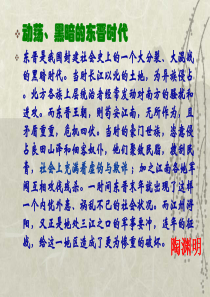 动荡、黑暗的东晋时代
东晋是我国封建社会史上的一个大分裂、大混战
的黑暗时代。当时长江以北的土地，为异族侵占
。北方各族上层统治者经常发动对南方的骚扰和
进攻。而在东晋王朝，则苟安江左，无所作为，且
矛盾重重，危机四伏。当时的豪门世族，纷纷侵占
良田山泽和扬名杖权，他们聚敛民脂，掠夺民
膏，社会上充满着虚伪与欺诈；加之江南各地军
阀互相攻伐残杀。一时间东晋末年就出现了这样
一个内忧外患、祸乱不已的社会状况。而江州浔
阳，又正是地处三江之口的军事要冲，连年的征
战，给这一地区造成了更为惨重的破坏。
陶渊明